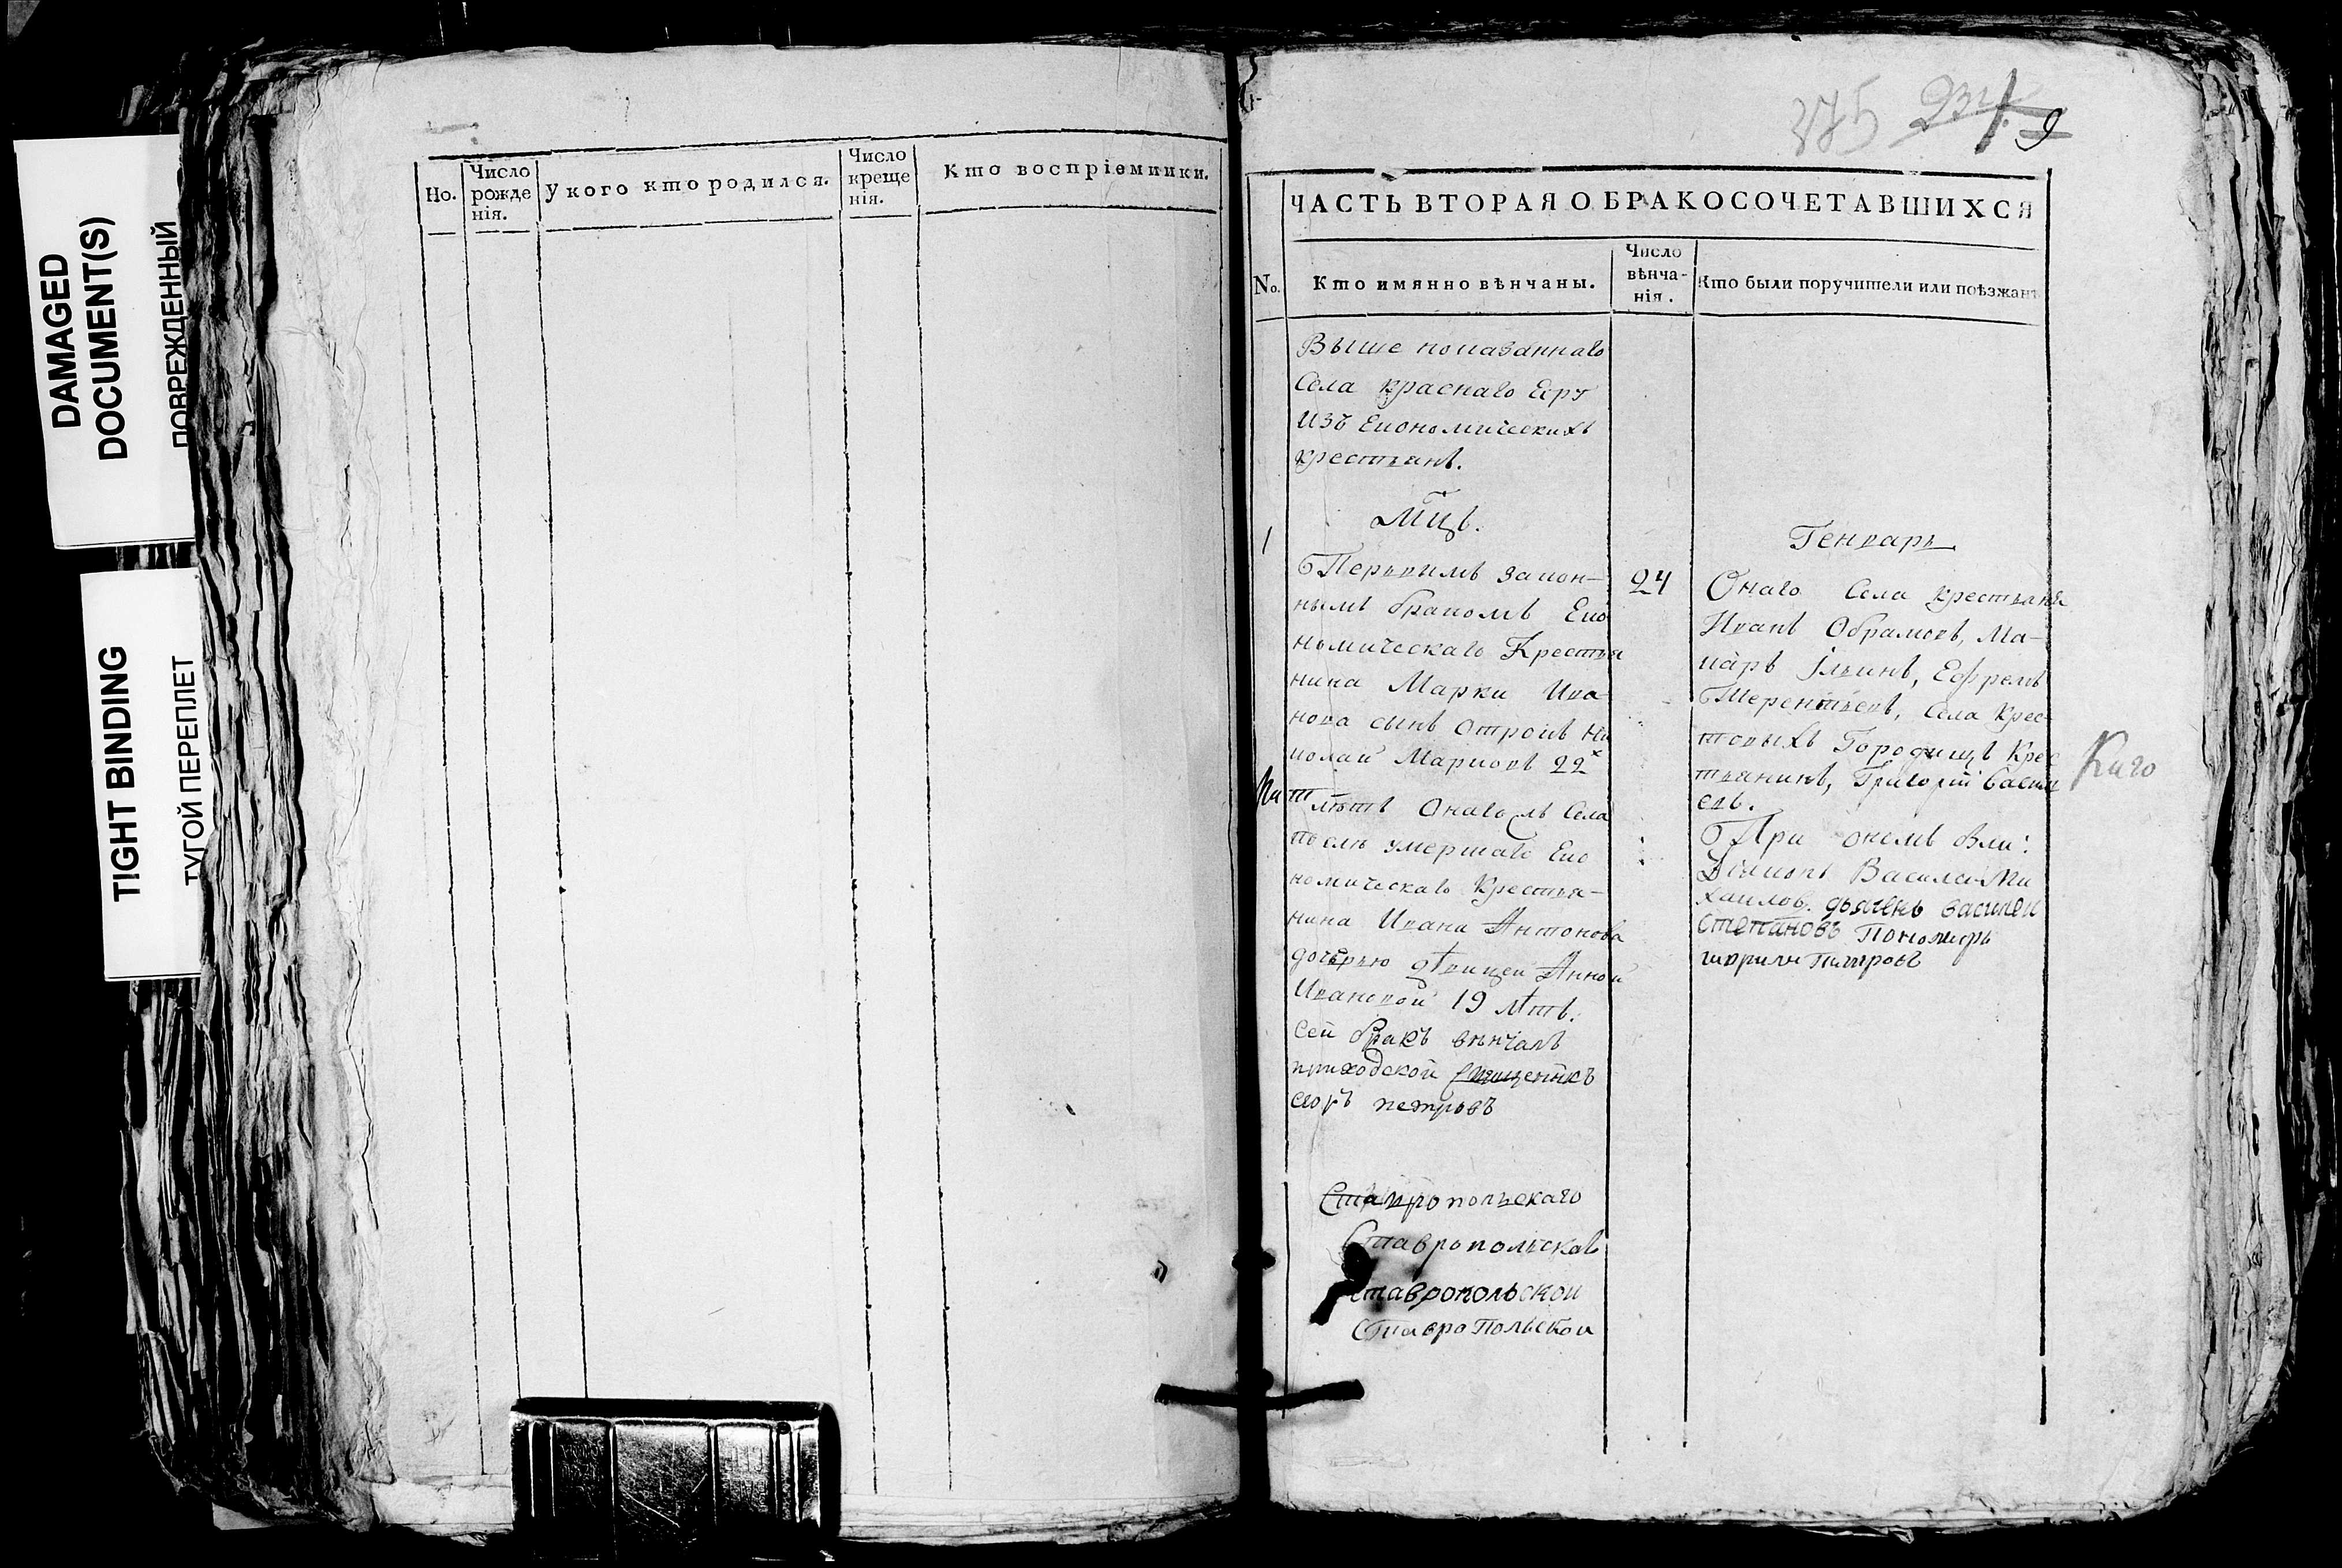 DAMAGED
DOCUMENT(S)
ПОВРЕЖДЕННЫЙ
TIGHT BINDING
ТУГОЙ ПЕРЕПЛЕТ
Но.
Число
рожде
нія.
У кого кто родился.
Число
креще
нія.
Кто воспріемники.
375
9
ЧАСТЬ ВТОРАЯ О БРАКОСОЧЕТАВШИХСЯ
No.
Кто имянно вѣнчаны.
Число
вѣнча-
нія.
Кто были поручители или поѣзжан
Выше показаннаго
Села краснаго Яру
Изъ Економическихъ
крестьянъ.
Мцъ.
Генварь
1
Первымъ закон-
нымъ бракомъ Еко
номическаго Крестья
нина Марки Ива
нова сынъ отрокъ Ни
колай Марковъ 22х
лѣтъ Онагожъ Села
послѣ умершаго Еко
номическаго Крестья-
нина Ивана Антонова
дочерью дѣвицей Анной
Ивановой 19 лѣтъ.
Сей бракъ вѣнчалъ
приходской священникъ
петровъ
24
Онаго Села крестьяня
Иванъ Обрамовъ, Ма-
каръ Ільинъ, Ефремъ
Терентьевъ, Села Крес
товыхъ Городищъ Крес
тьянинъ, Григорій Васил
евъ.
При ономъ были:
Діяконъ Василей Ми
хаиловъ. дьячекъ василей
степановъ Пономарь
Ставропольскаго
Ставропольскаго
Ставропольской
Ставропольской